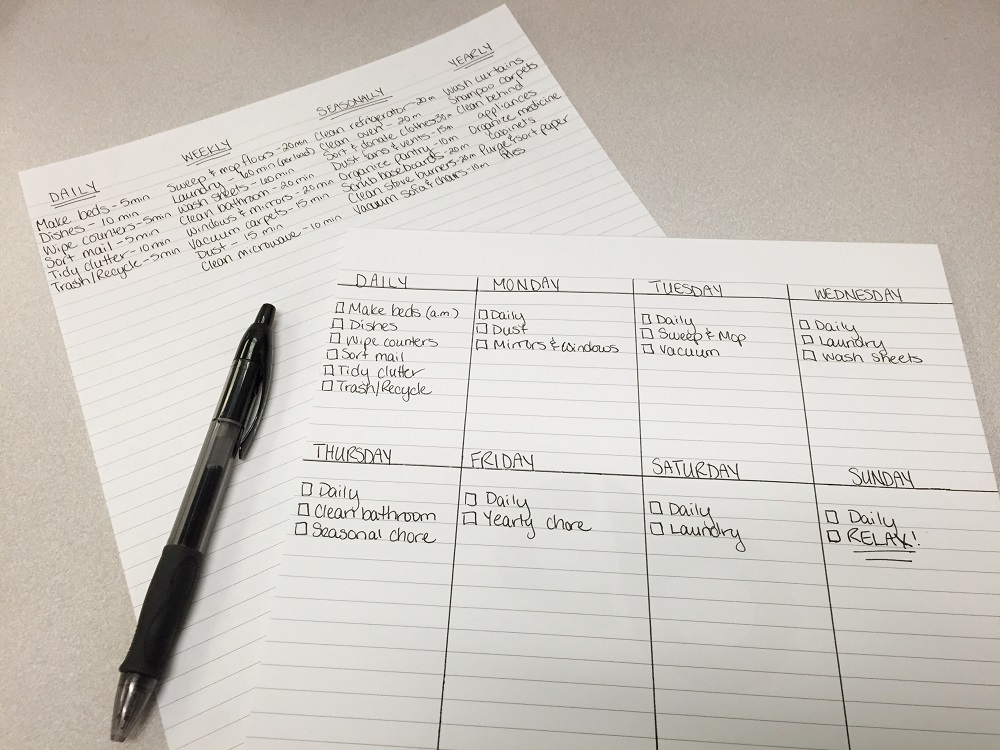 DAILY
Make beds - 5min
Dishes - 10 min
Wipe counters - 5min
Sort mail - 5min
Tidy clutter - 10min
Trash/Recycle - 5min
WEEKLY
Sweep & mop floors - 20min
Laundry - 60 min (per load)
Wash sheets - 60min
Clean bathroom - 20 min
Windows & mirrors - 20 min
Vacuum carpets - 15 min
Dust - 15 min
Clean microwave - 10 min
SEASONALLY
Clean refrigerator - 20m
Clean oven - 20m
Sort & donate clothes 30m
Dust fans & vents - 15m
Organize pantry - 10m
Scrub baseboards - 20m
Clean stove burners - 20m
Vacuum sofa & chairs - 10m
YEARLY
Wash curtains
Shampoo carpets
Clean behind
appliances
Organize medicine
cabinets
Purge & sort paper
files
DAILY
Make beds (a.m.)
Dishes
Wipe counters
Sort mail
Tidy clutter
Trash/Recycle
MONDAY
Daily
Dust
Mirrors & Windows
TUESDAY
Daily
Sweep & Mop
Vacuum
WEDNESDAY
Daily
Laundry
Wash sheets
THURSDAY
Daily
Clean bathroom
Seasonal chore
FRIDAY
Daily
Yearly chore
SATURDAY
Daily
Laundry
SUNDAY
Daily
RELAX!